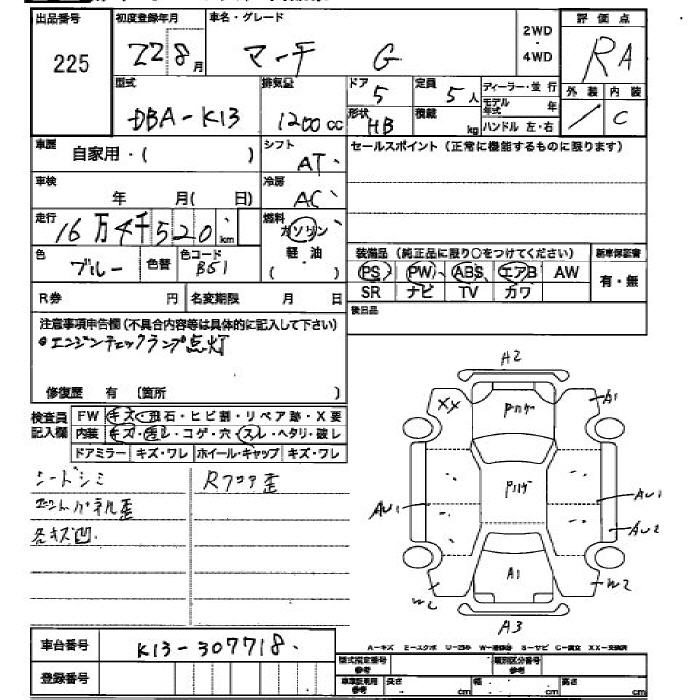 出品番号 初度登録年月 車名・グレード 2WD・4WD 評価点
225 22 8月 マーチ G RA
型式 排気量 ドア 定員 ディーラー・並行 外装 内装
DBA-K13 1200cc 5 5人 モデル年式 年 / C
形状 HB 積載 kg ハンドル 左・右
車歴 自家用・( ) シフト AT セールスポイント(正常に機能するものに限ります)
車検 年 月( 日) 冷房 AC
走行 16万4千520km 燃料 ガソリン
軽油
( )
色 ブルー 色替 色コード B51
装備品(純正品に限り○をつけてください) 新車保証書
PS PW ABS エアB AW 有・無
SR ナビ TV カワ
R券 円 名変期限 月 日 後日品
注意事項申告欄(不具合内容等は具体的に記入して下さい)
エンジンチェックランプ点灯
修復歴 有 〔箇所 〕
検査員記入欄 FW キズ・飛石・ヒビ割・リペア跡・X要
内装 キズ・汚レ・コゲ・穴・スレ・ヘタリ・破レ
ドアミラー キズ・ワレ ホイール・キャップ キズ・ワレ
シートシミ Rフロア歪
エンドパネル歪
各キズ凹
A2
XX Pハゲ A1
Pハゲ
AU1 AU1
AU2
A1
W2 W2
A3
A-キズ E-エクボ U-凹み W-補修跡 S-サビ C-腐食 XX-交換済
車台番号 K13-307718
登録番号
型式指定番号 類別区分番号
参考 参考
車庫証明用 長さ cm 幅 cm 高さ cm
参考